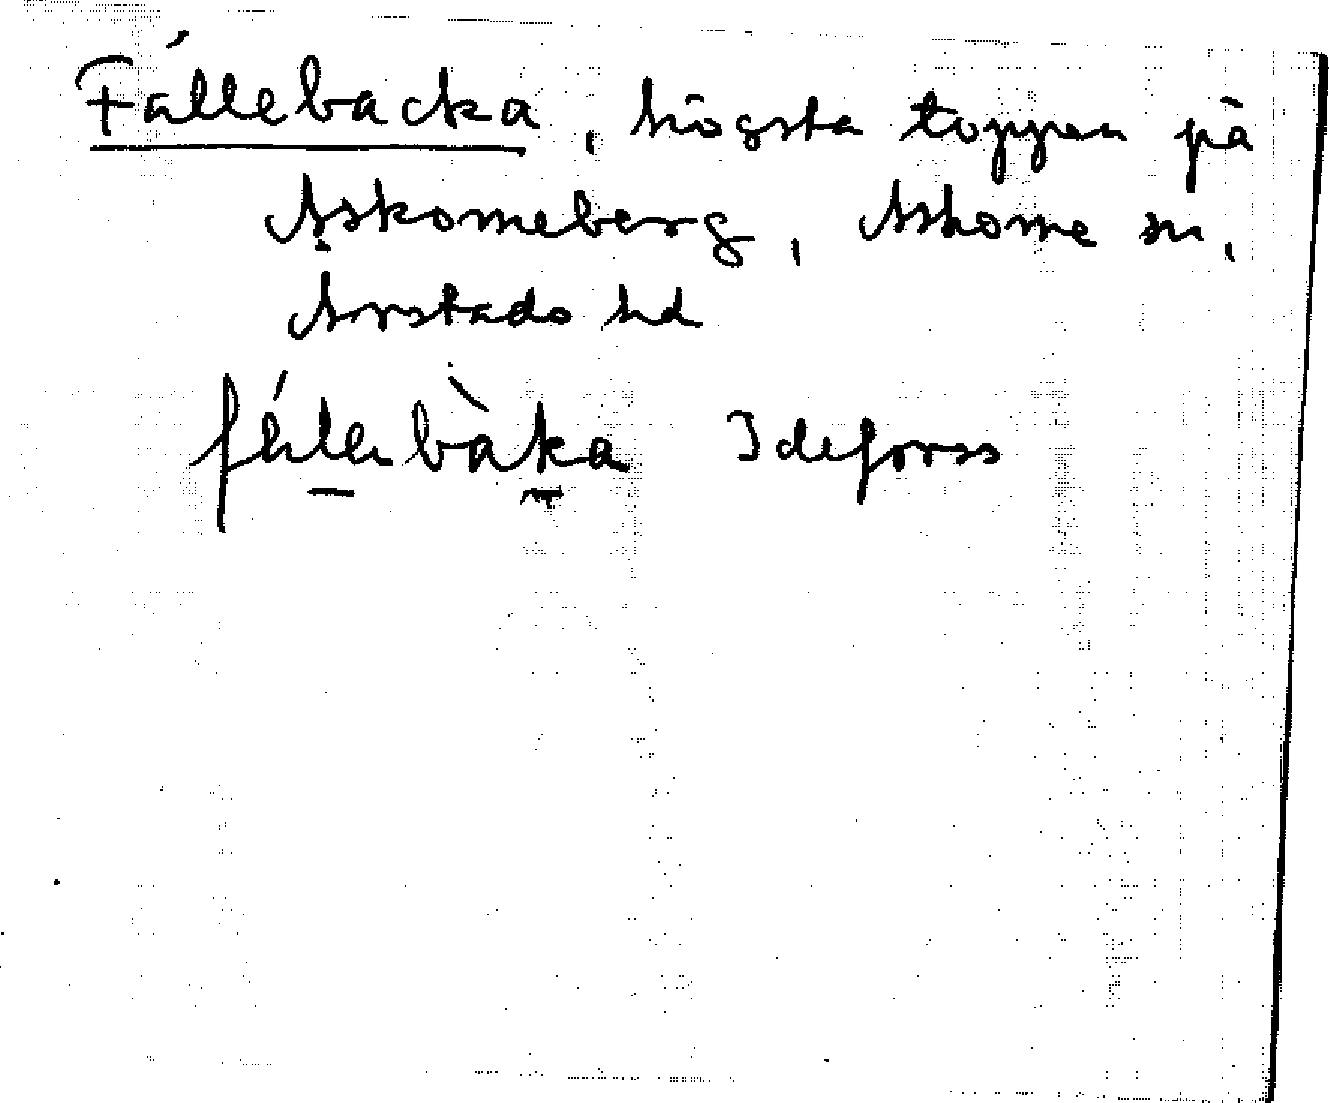 Fállebacka, högsta toppen på
Askomeberg, Askome sn,
Årstads hd
Ideforss